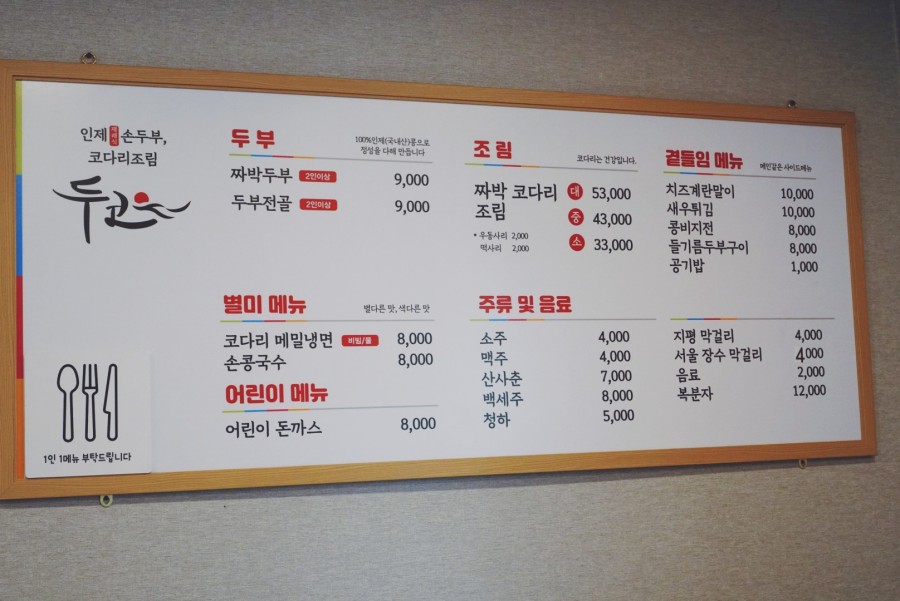 인제 손두부,
코다리조림
두고
1인 1메뉴 부탁드립니다
두부
100%인제(국내산)콩으로
정성을 다해 만듭니다
짜박두부 2인이상 9,000
두부전골 2인이상 9,000
조림
코다리는 건강입니다.
짜박 코다리 대 53,000
조림 중 43,000
• 우동사리 2,000
떡사리 2,000
소 33,000
곁들임 메뉴
메인같은 사이드메뉴
치즈계란말이 10,000
새우튀김 10,000
콩비지전 8,000
들기름두부구이 8,000
공기밥 1,000
별미 메뉴
별다른 맛, 색다른 맛
코다리 메밀냉면 비빔/물 8,000
손콩국수 8,000
어린이 메뉴
어린이 돈까스 8,000
주류 및 음료
소주 4,000
맥주 4,000
산사춘 7,000
백세주 8,000
청하 5,000
지평 막걸리 4,000
서울 장수 막걸리 4,000
음료 2,000
복분자 12,000